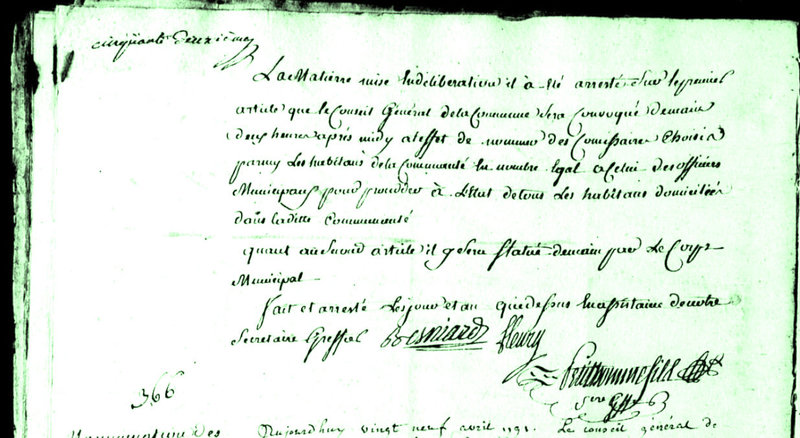 cinquante deuxieme
La Matierre mise En deliberation il à été arresté sur le premier
article que le Conseil Général de la Commune sera Convoqué demain
deux heures après midy a l'effet de nommer des Comissaires Choisis
parmy Les habitans de la Communauté En nombre Egal a Celui des officiers
Municipaux pour proceder à L'Etat de tous Les habitans domiciliés
dans laditte Communauté
quant au second article il y sera statué demain par Le Corps
Municipal
fait et arresté Les jour et an que dessus En assistance de notre
Secretaire Greffier Besniard fleury
Petithommefils
Sre Gff
366
Aujourdhuy vingt neuf avril 1791. Le conseil général de